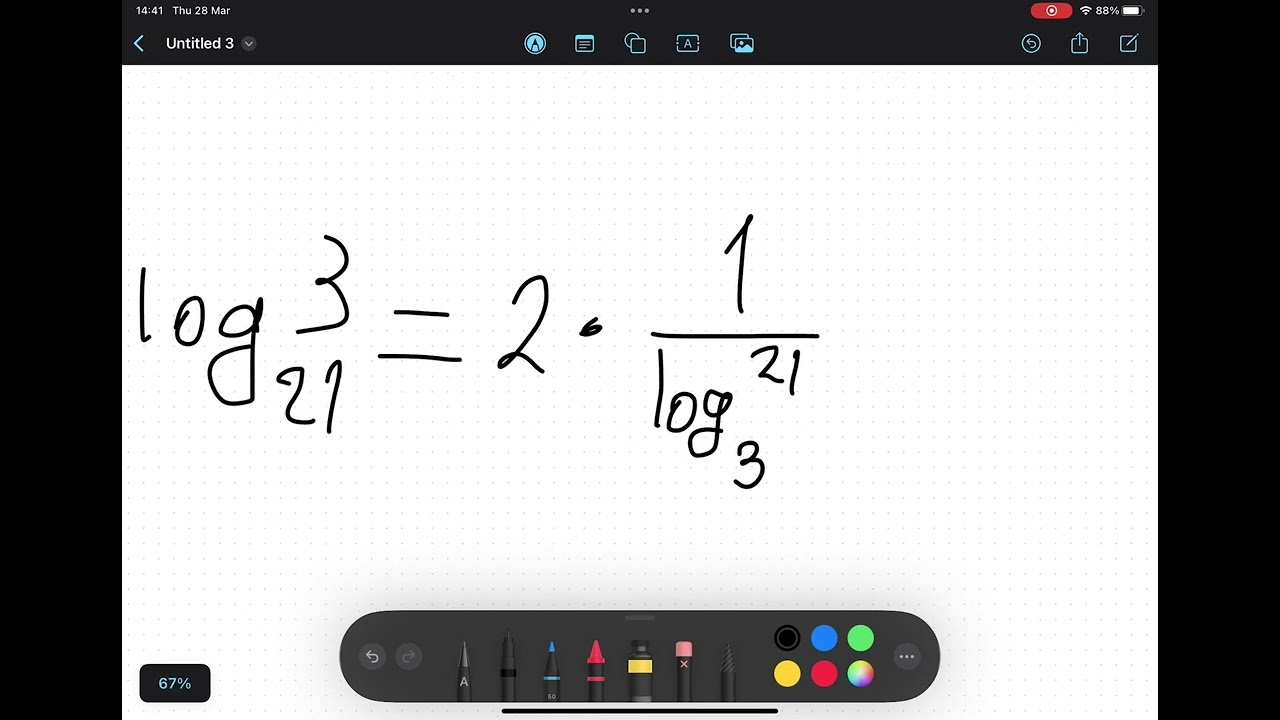 14:41 Thu 28 Mar
88%
Untitled 3
A
log₂₁ 3 = 2 · 1 / log₃ 21
A
50
67%